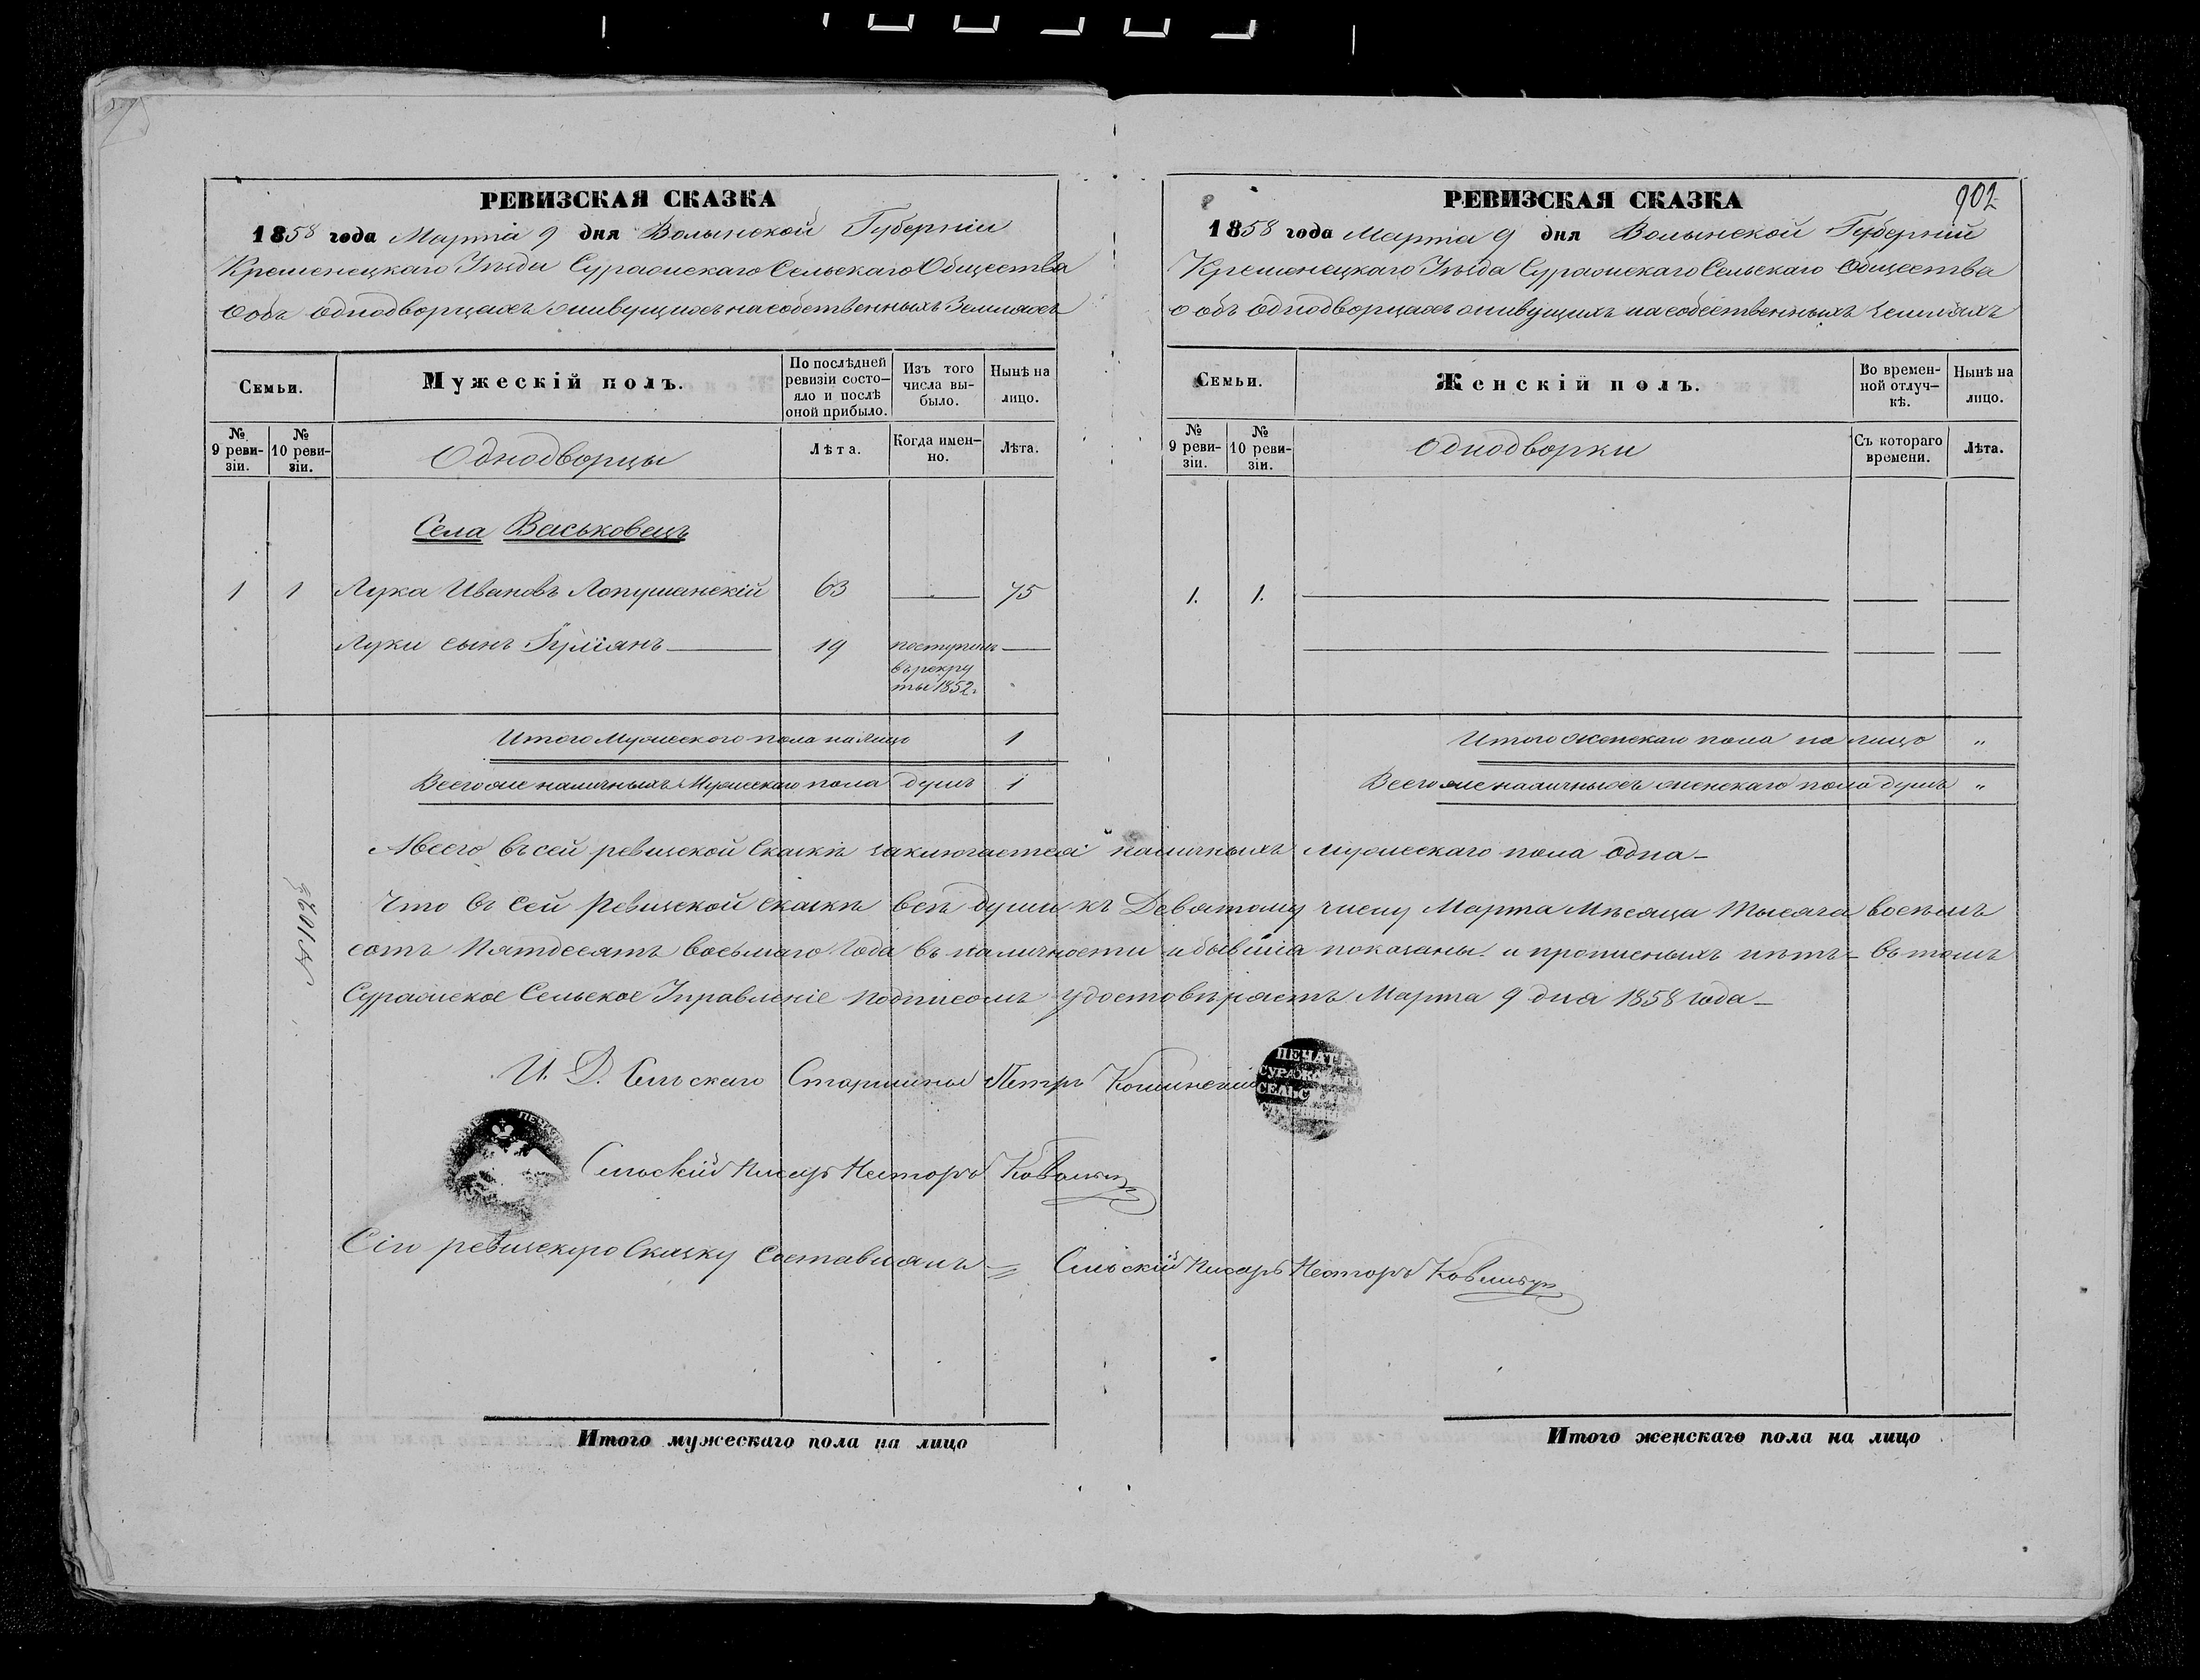 РЕВИЗСКАЯ СКАЗКА
1858 года Марта 9 дня Волынской Губерніи
Кременецкаго Уѣзда Суражскаго Сельскаго Общества
объ однодворцахъ живущихъ на собственныхъ Земляхъ
Семьи.
Мужескій полъ.
По послѣдней ревизіи состо-яло и послѣ оной прибыло.
Изъ того числа вы-было.
Нынѣ на лицо.
№ 9 реви-зіи.
№ 10 реви-зіи.
Однодворцы
Лѣта.
Когда имен-но.
Лѣта.
Села Васьковецъ
1 1 Лука Ивановъ Лопушанскій 63 — 75
Луки сынъ — 19 поступилъ —
въ рекру
ты 1852 г.
Итого Мужескаго пола на лицо 1
Всего же наличныхъ Мужескаго пола душъ 1
РЕВИЗСКАЯ СКАЗКА
902
1858 года Марта 9 дня Волынской Губерніи
Кременецкаго Уѣзда Суражскаго Сельскаго Общества
объ однодворцахъ живущихъ на собственныхъ земляхъ
Семьи.
Женскій полъ.
Во времен-ной отлуч-кѣ.
Нынѣ на лицо.
№ 9 реви-зіи.
№ 10 реви-зіи.
Однодворки
Съ котораго времени.
Лѣта.
1. 1. — — —
— — —
Итого женскаго пола на лицо "
Всего же наличныхъ женскаго пола душъ "
Всего въ сей ревизской Сказкѣ заключается наличныхъ мужескаго пола одна —
Что въ сей Ревизской сказкѣ всѣ души къ Девятому числу Марта Мѣсяца Тысяча восемь
сотъ Пятдесятъ восьмаго Года въ наличности и бывшія показаны и прописныхъ нѣтъ — въ томъ
Суражское Сельское Управленіе подписомъ удостовѣряетъ. Марта 9 дня 1858 года —
И. Д. Сельскаго Старшины Петръ
ПЕЧАТЬ
СУРАЖСКАГО
СЕЛЬС
Сельскій Писарь Несторъ
Сію ревизскую Сказку Составлялъ = Сельскій Писарь Несторъ
Итого мужескаго пола на лицо
Итого женскаго пола на лицо